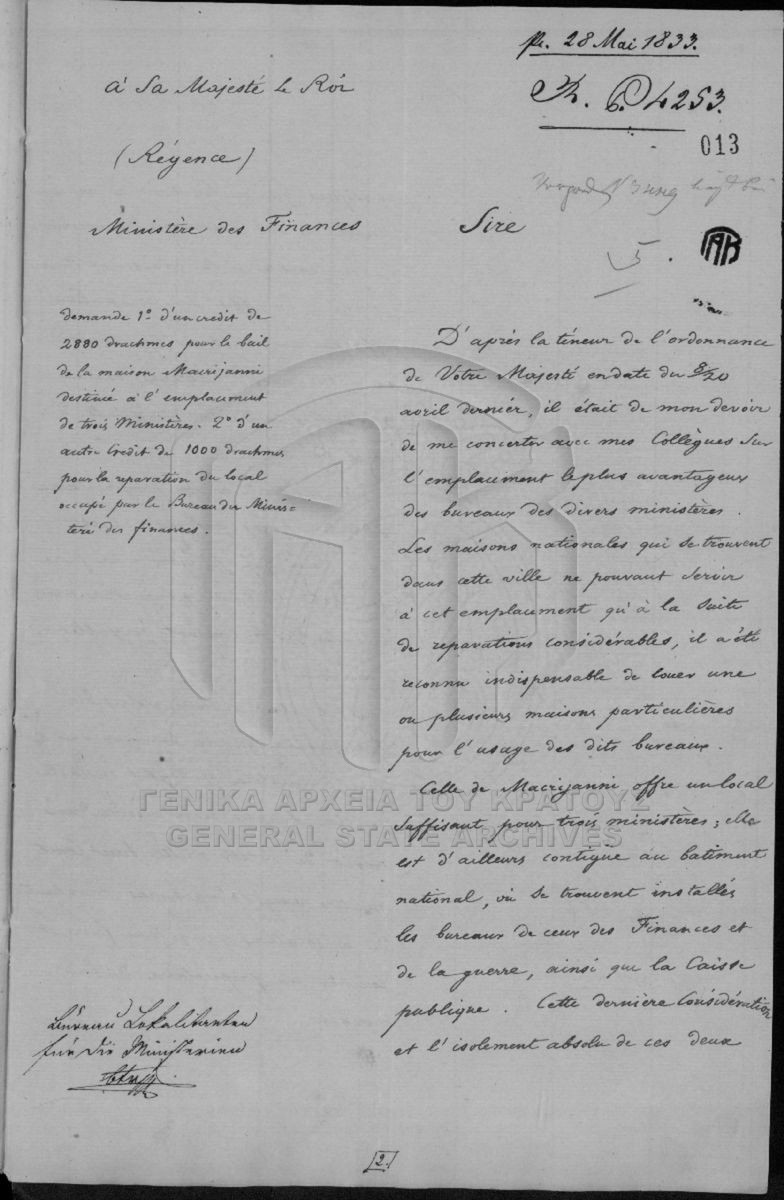 pr. 28 Mai 1833.
4253.
013
à Sa Majesté le Roi
(Régence)
Ministère des Finances
Sire
5.
demande 1° d'un credit de
2880 drachmes pour le bail
de la maison Macrijanni
destinée à l'emplacement
de trois Ministères. 2° d'un
autre Credit de 1000 drachmes
pour la reparation du local
occupé par le Bureau du Minis-
tere des finances.
D'après la téneur de l'ordonnance
de Votre Majesté en date du 8/20
avril dernier, il était de mon devoir
de me concerter avec mes Collègues sur
l'emplacement le plus avantageux
des bureaux des divers ministères.
Les maisons nationales qui se trouvent
dans cette ville ne pouvant servir
à cet emplacement qu'à la suite
de reparations considérables, il a été
reconnu indispensable de louer une
ou plusieurs maisons particulières
pour l'usage des dits bureaux.
Celle de Macrijanni offre un local
suffisant pour trois ministères; elle
est d'ailleurs contigue au batiment
national, où se trouvent installés
les bureaux de ceux des Finances et
de la guerre, ainsi que la Caisse
publique. Cette dernière Considération
et l'isolement absolu de ces deux
Bureau Lokalitaeten
für die Ministerien
2.
ΓΕΝΙΚΑ ΑΡΧΕΙΑ ΤΟΥ ΚΡΑΤΟΥΣ
GENERAL STATE ARCHIVES